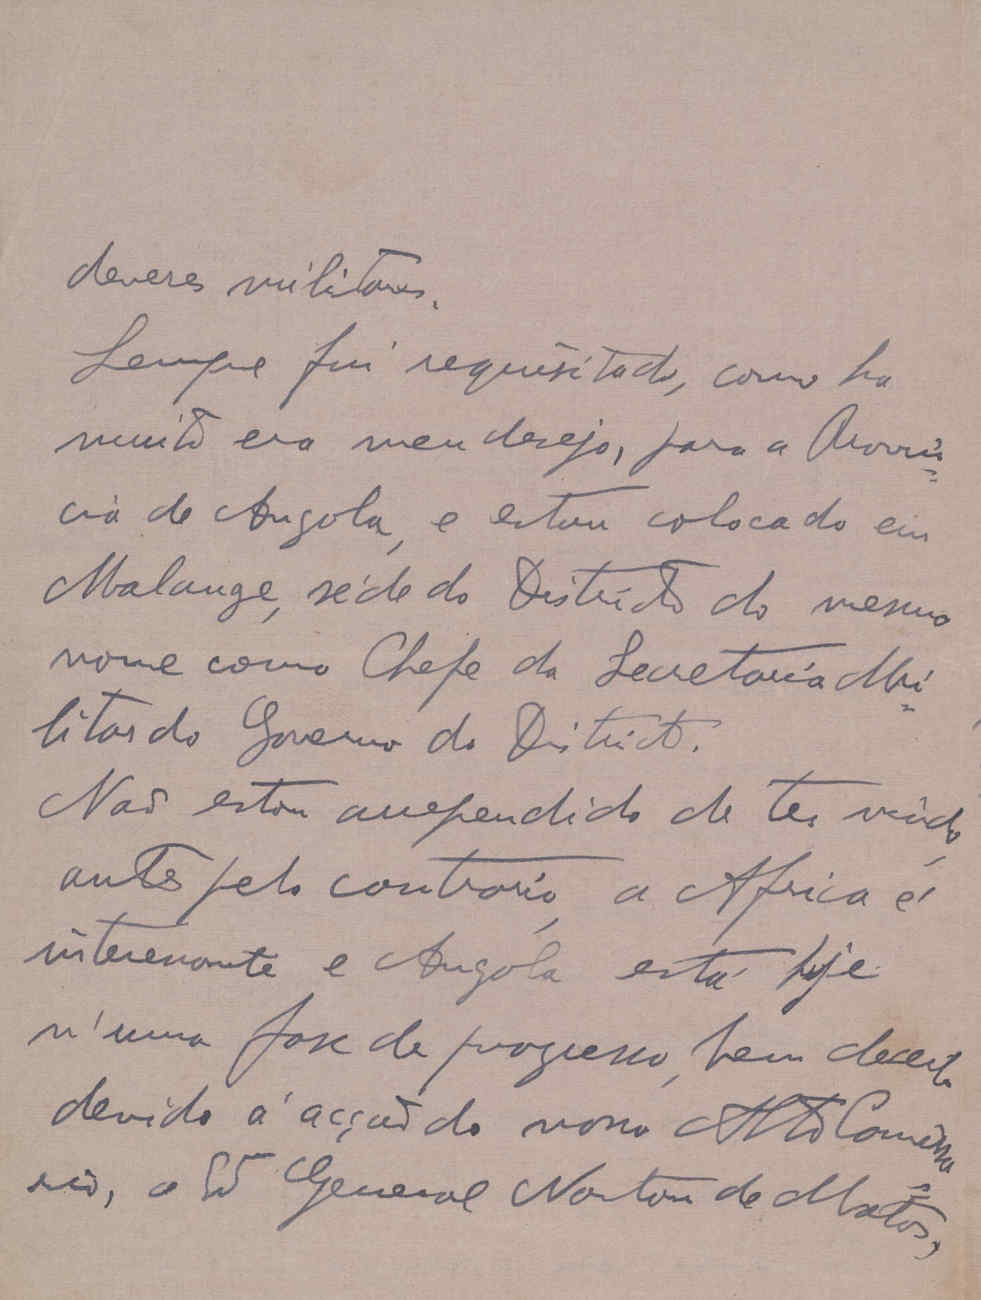 deveres militares.
Sempre fui requisitado, como ha
muito era meu desejo, para a Provin=
cia de Angola, e estou colocado em
Malange, séde do Districto do mesmo
nome como Chefe da Secretaria Mi=
litar do Governo do Districto.
Não estou arrependido de ter vindo,
antes pelo contrario, a Africa é
interessante e Angola está hoje
n'uma fase de progresso, bem decerto
devido á acção do nosso Alto Comissa=
rio, o Snr General Norton de Matos,